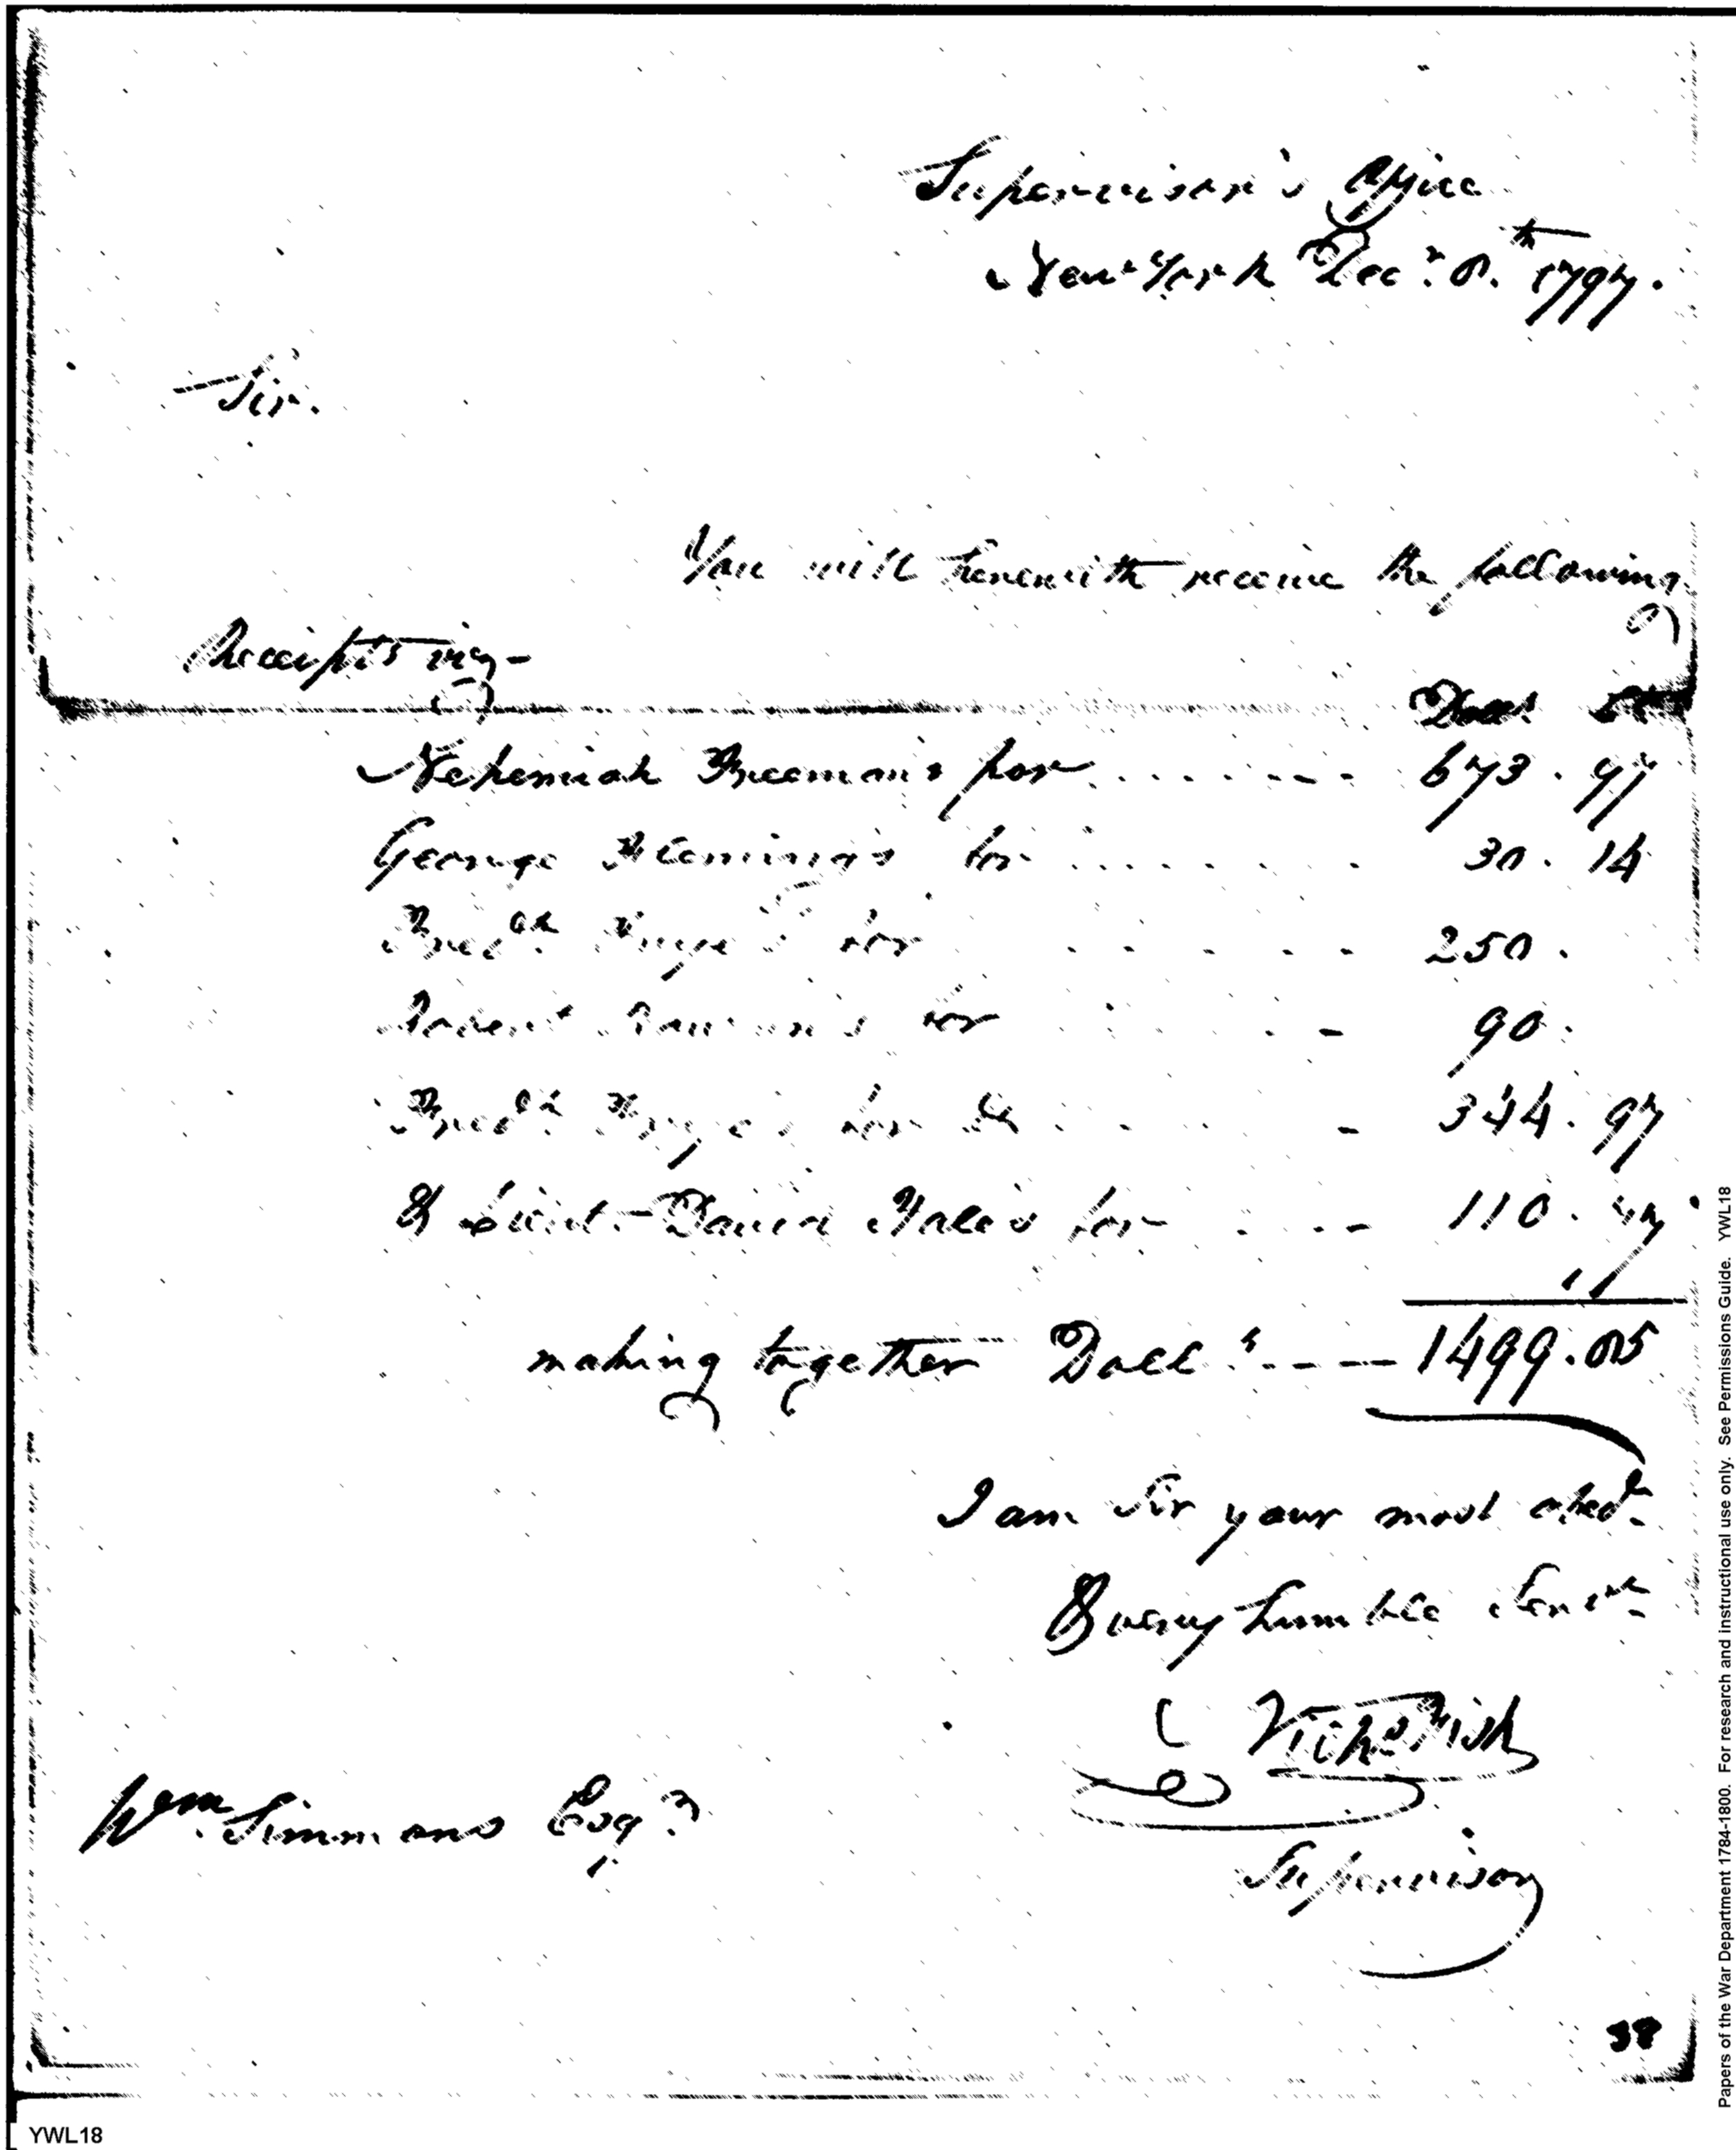 Supervisor's Office
New York Decr. th 1797.
Sir.
You will herewith receive the following
Receipts viz-
Dolls Cts
Nehemiah Freeman's for ....... 673. 47
George Fleming's for ........ 30. 14
Fredk Frye's for ..... 250.
for ..... 90.
Fredk Frye's for Do .... 344. 97
& Lieut. David Hale's for .... 110. 47
making together Dolls.---- 1499.05
I am Sir your most obedt
& very humble Servt
Nichs Fish
Wm. Simmons Esqr.
Supervisor
38
YWL18
Papers of the War Department 1784-1800. For research and instructional use only. See Permissions Guide. YWL18